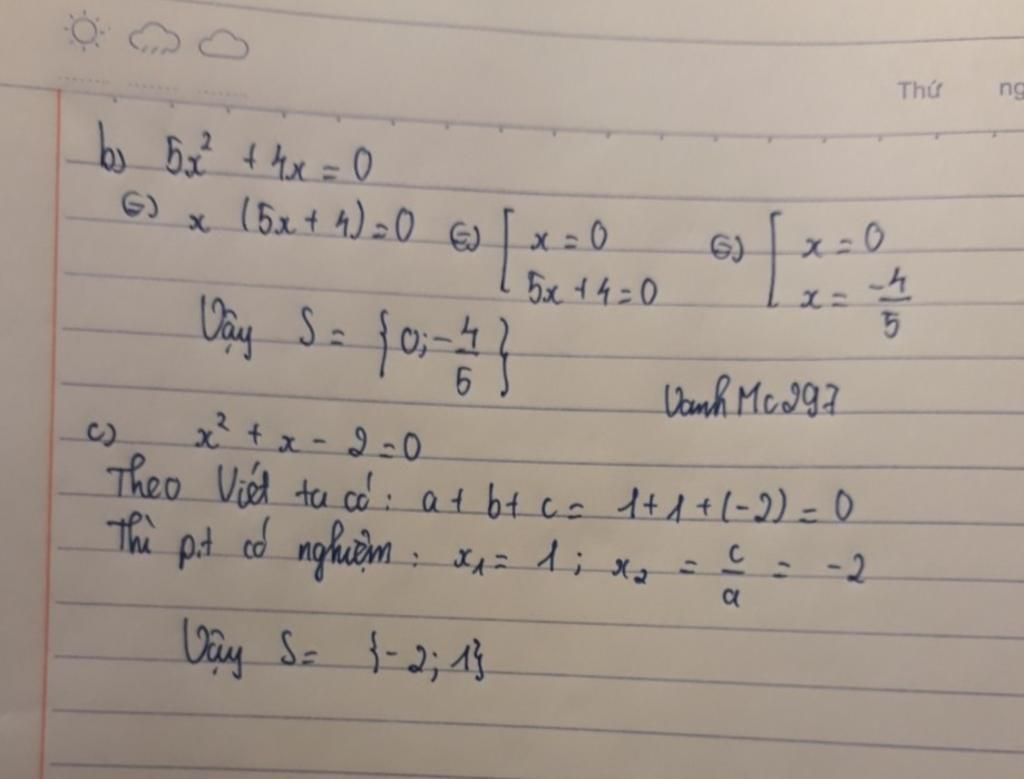 Thứ ng
b) 5x² + 4x = 0
⇔ x (5x + 4) = 0 ⇔ [ x = 0 ⇔ [ x = 0
5x + 4 = 0 x = -4/5
Vậy S = {0; -4/5}
VanhMc297
c) x² + x - 2 = 0
Theo Viét ta có: a + b + c = 1 + 1 + (-2) = 0
Thì p.t có nghiệm: x₁ = 1; x₂ = c/a = -2
Vậy S = {-2; 1}